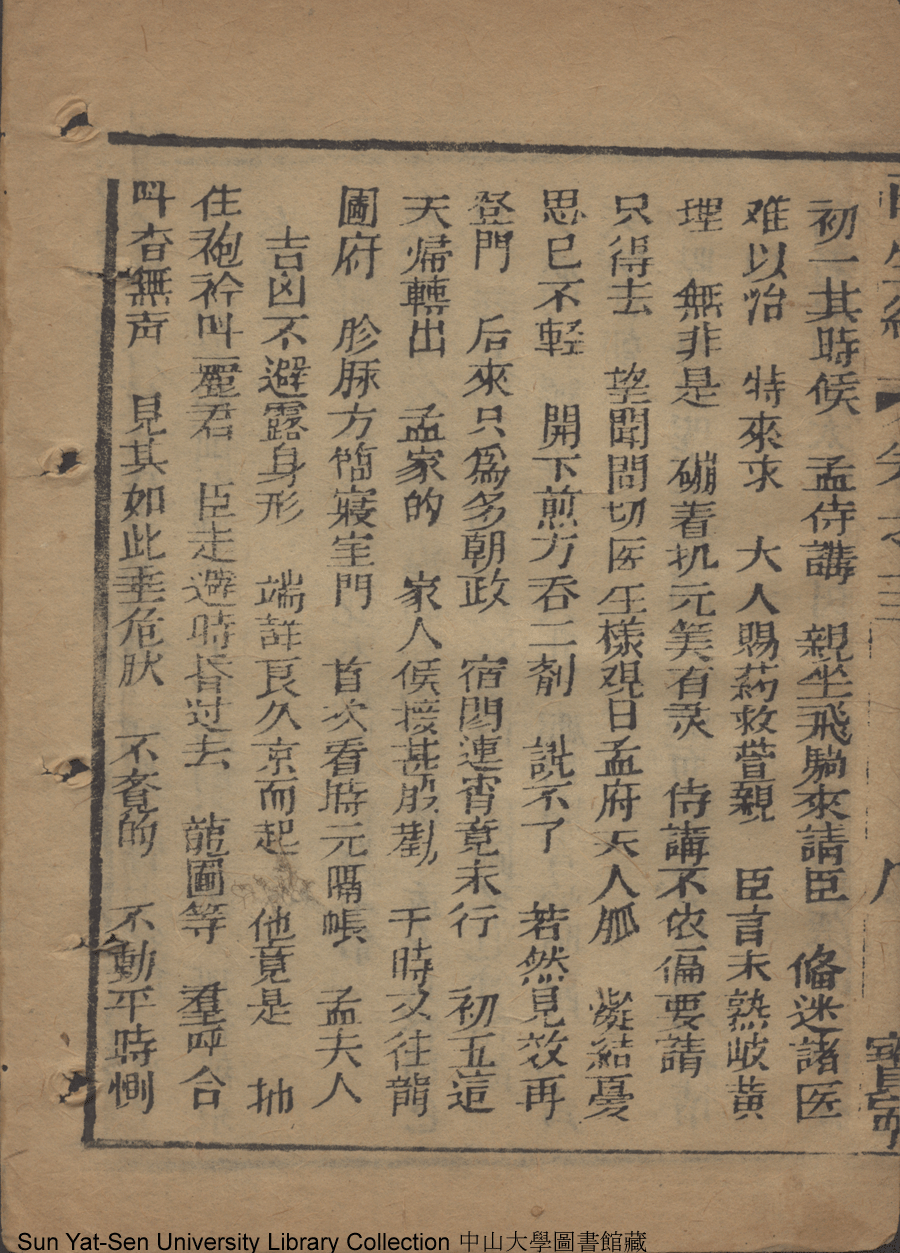 初一其時候　孟侍講　親坐飛䮫來請臣　俻迷諸医
难以治　特來求　大人賜药救萱親　臣言未熟岐黄
理　無非是　磞着机元筭有灵　侍講不依偏要請
只得去　望聞問切医生樣观日孟府夫人脈　凝結憂
思已不軽　開下煎方吞二剤　説不了　若然見效再
登門　后來只爲多朝政　宿閣連宵竟未行　初五這
天帰轉出　孟家的　家人候接甚殷勤　于時又往龍
圖府　胗脉方臨寢室門　首次看時元隔帳　孟夫人
吉凶不避露身形　端詳良久京而起　他竟是　抽
住袍衿呌麗君　臣走避時昏过去　龍圖等　羣呼合
呌杳無声　見其如此垂危狀　不觉的　不動平時惻
Sun Yat-Sen University Library Collection 中山大學圖書館藏